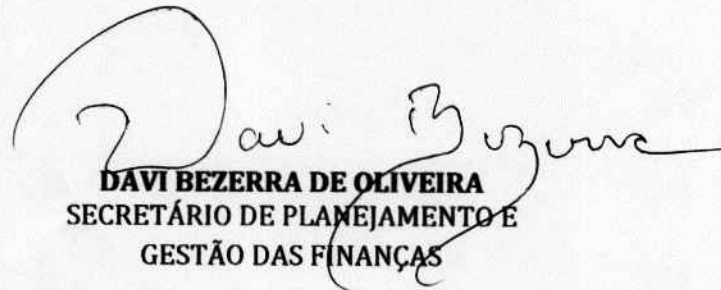 Davi Bezerra
DAVI BEZERRA DE OLIVEIRA
SECRETÁRIO DE PLANEJAMENTO E
GESTÃO DAS FINANÇAS